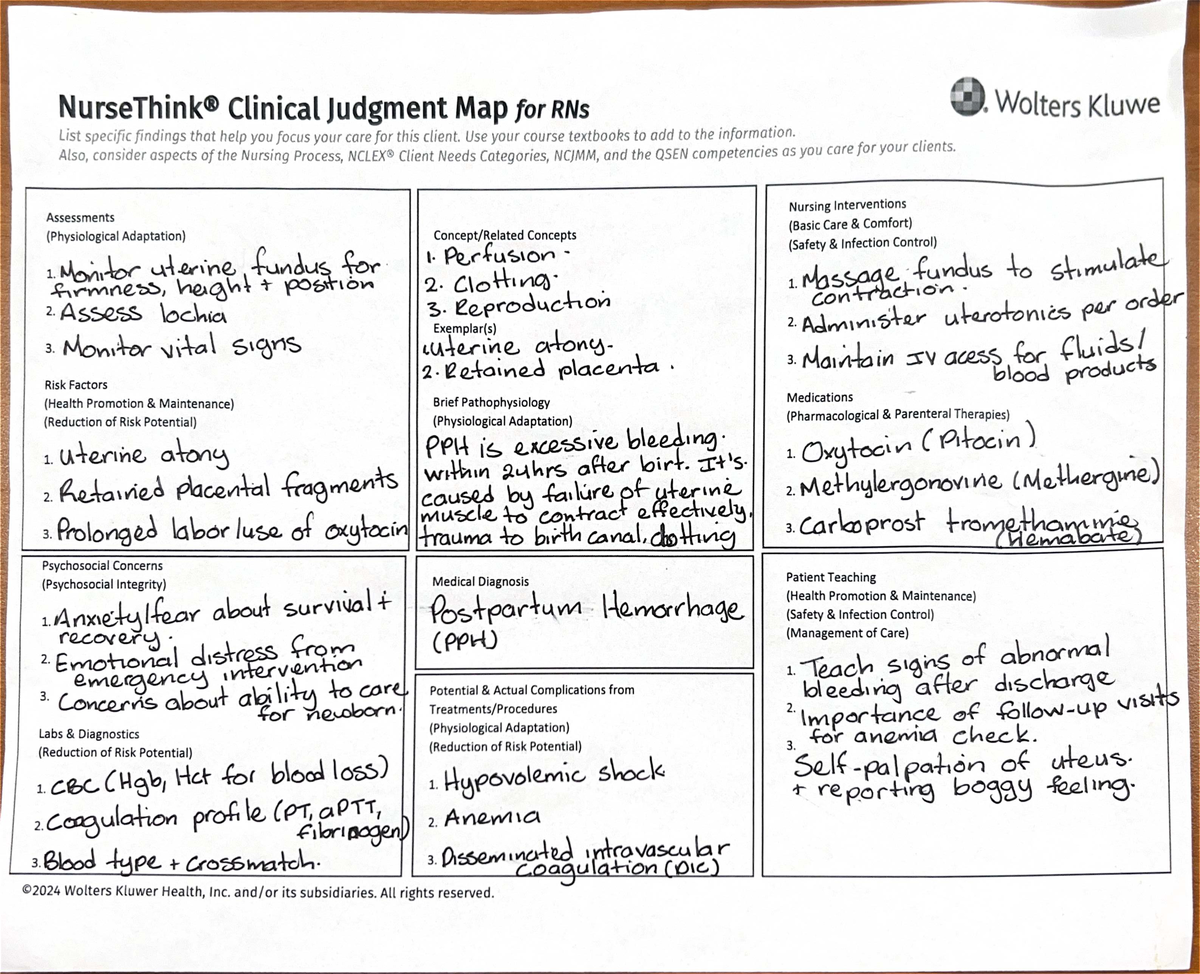 NurseThink® Clinical Judgment Map for RNs
Wolters Kluwe
List specific findings that help you focus your care for this client. Use your course textbooks to add to the information.
Also, consider aspects of the Nursing Process, NCLEX® Client Needs Categories, NCJMM, and the QSEN competencies as you care for your clients.
Assessments
(Physiological Adaptation)
1. Monitor uterine fundus for
firmness, height + position
2. Assess lochia
3. Monitor vital signs
Risk Factors
(Health Promotion & Maintenance)
(Reduction of Risk Potential)
1. Uterine atony
2. Retained placental fragments
3. Prolonged labor/use of oxytocin
Concept/Related Concepts
1. Perfusion.
2. Clotting.
3. Reproduction
Exemplar(s)
1. Uterine atony.
2. Retained placenta.
Brief Pathophysiology
(Physiological Adaptation)
PPH is excessive bleeding.
within 24hrs after birt. It's.
caused by failure of uterine
muscle to contract effectively,
trauma to birth canal, clotting
Nursing Interventions
(Basic Care & Comfort)
(Safety & Infection Control)
1. Massage fundus to stimulate
contraction.
2. Administer uterotonics per order
3. Maintain IV acess for fluids/
blood products
Medications
(Pharmacological & Parenteral Therapies)
1. Oxytocin (Pitocin)
2. Methylergonovine (Methergine)
3. Carboprost tromethamine
(Hemabate)
Psychosocial Concerns
(Psychosocial Integrity)
1. Anxiety/fear about survival +
recovery.
2. Emotional distress from
emergency intervention
3. Concerns about ability to care
for newborn.
Labs & Diagnostics
(Reduction of Risk Potential)
1. CBC (Hgb, Hct for blood loss)
2. Coagulation profile (PT, aPTT,
fibrinogen)
3. Blood type + crossmatch.
Medical Diagnosis
Postpartum Hemorrhage
(PPH)
Potential & Actual Complications from
Treatments/Procedures
(Physiological Adaptation)
(Reduction of Risk Potential)
1. Hypovolemic shock
2. Anemia
3. Disseminated intravascular
coagulation (DIC)
Patient Teaching
(Health Promotion & Maintenance)
(Safety & Infection Control)
(Management of Care)
1. Teach signs of abnormal
bleeding after discharge
2. Importance of follow-up visits
for anemia check.
3.
Self-palpation of uteus.
+ reporting boggy feeling.
©2024 Wolters Kluwer Health, Inc. and/or its subsidiaries. All rights reserved.